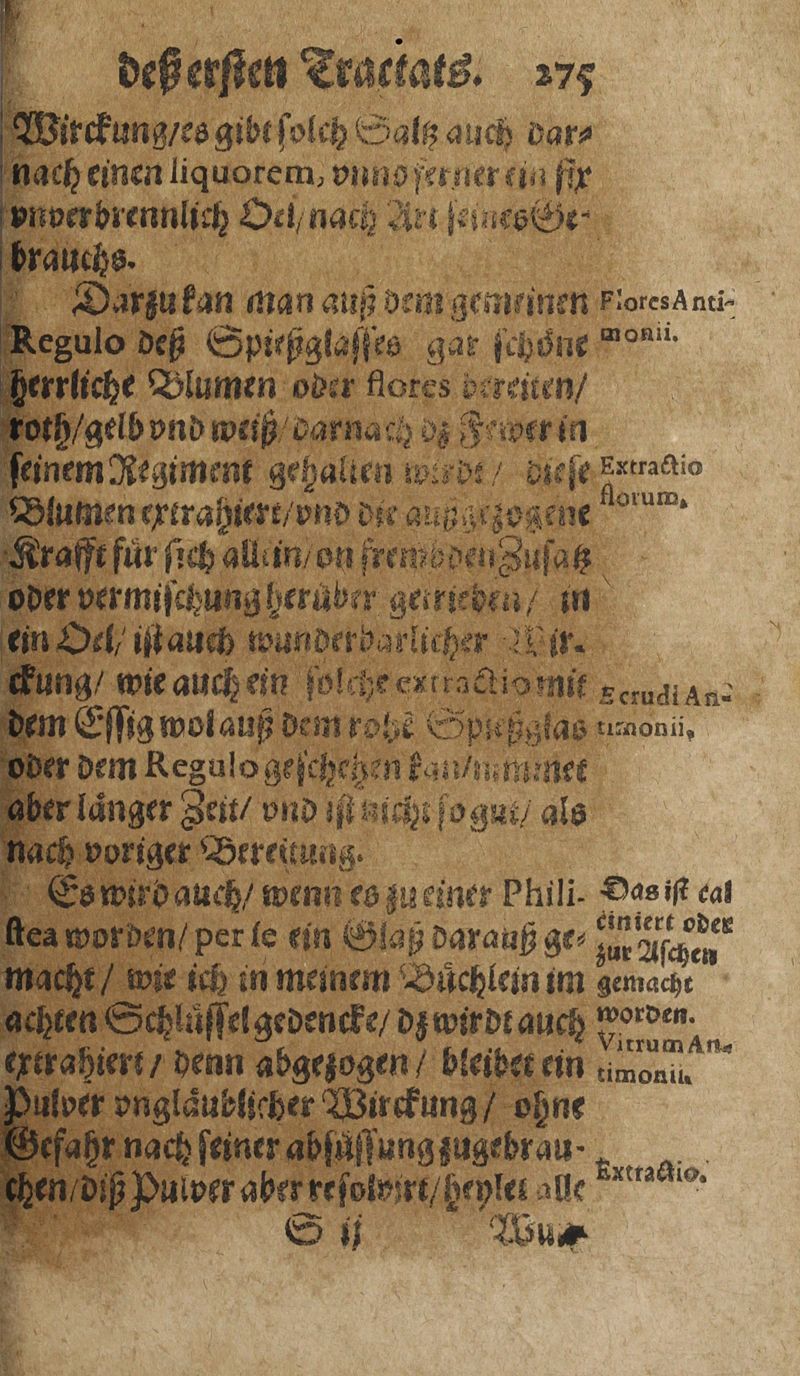 deß ersten Tractats. 275
Wirckung/es gibt solch Saltz auch dar⸗
nach einen liquorem, vnnd ferner ein fix
vnverbrennlich Oel/nach Art seines Ge⸗
brauchs.
Darzu kan man auß dem gemeinen
Regulo deß Spießglasses gar schöne
herrliche Blumen oder flores bereiten/
roth/gelb vnd weiß/darnach dz Fewer in
seinem Regiment gehalten wirdt/ diese
Blumen extrahiert/vnd die außgezogene
Krafft für sich allein/on frembdden Zusatz
oder vermischung herüber getrieben/ in
ein Oel/ ist auch wunderbarlicher Wir⸗
ckung/ wie auch ein solche extractio mit
dem Essig wol auß dem rohē Spießglas
oder dem Regulo geschehen kan/nimmet
aber länger Zeit/ vnd ist nicht so gut/ als
nach voriger Bereitung.
Es wird auch/ wenn es zu einer Phili-
stea worden/ per se ein Glaß darauß ge⸗
macht/ wie ich in meinem Büchlein im
achten Schlüssel gedencke/ dz wirdt auch
extrahiert/ denn abgezogen/ bleibet ein
Pulver vngläublicher Wirckung/ ohne
Gefahr nach seiner absüssung zugebrau⸗
chen/diß Pulver aber resolvirt/heylet alle
S ij Wu⸗
Flores Anti-
monii.
Extractio
florum.
E crudi An-
timonii,
Das ist cal
ciniert oder
zur Aschen
gemacht
worden.
Vitrum An-
timonii.
Extractio.